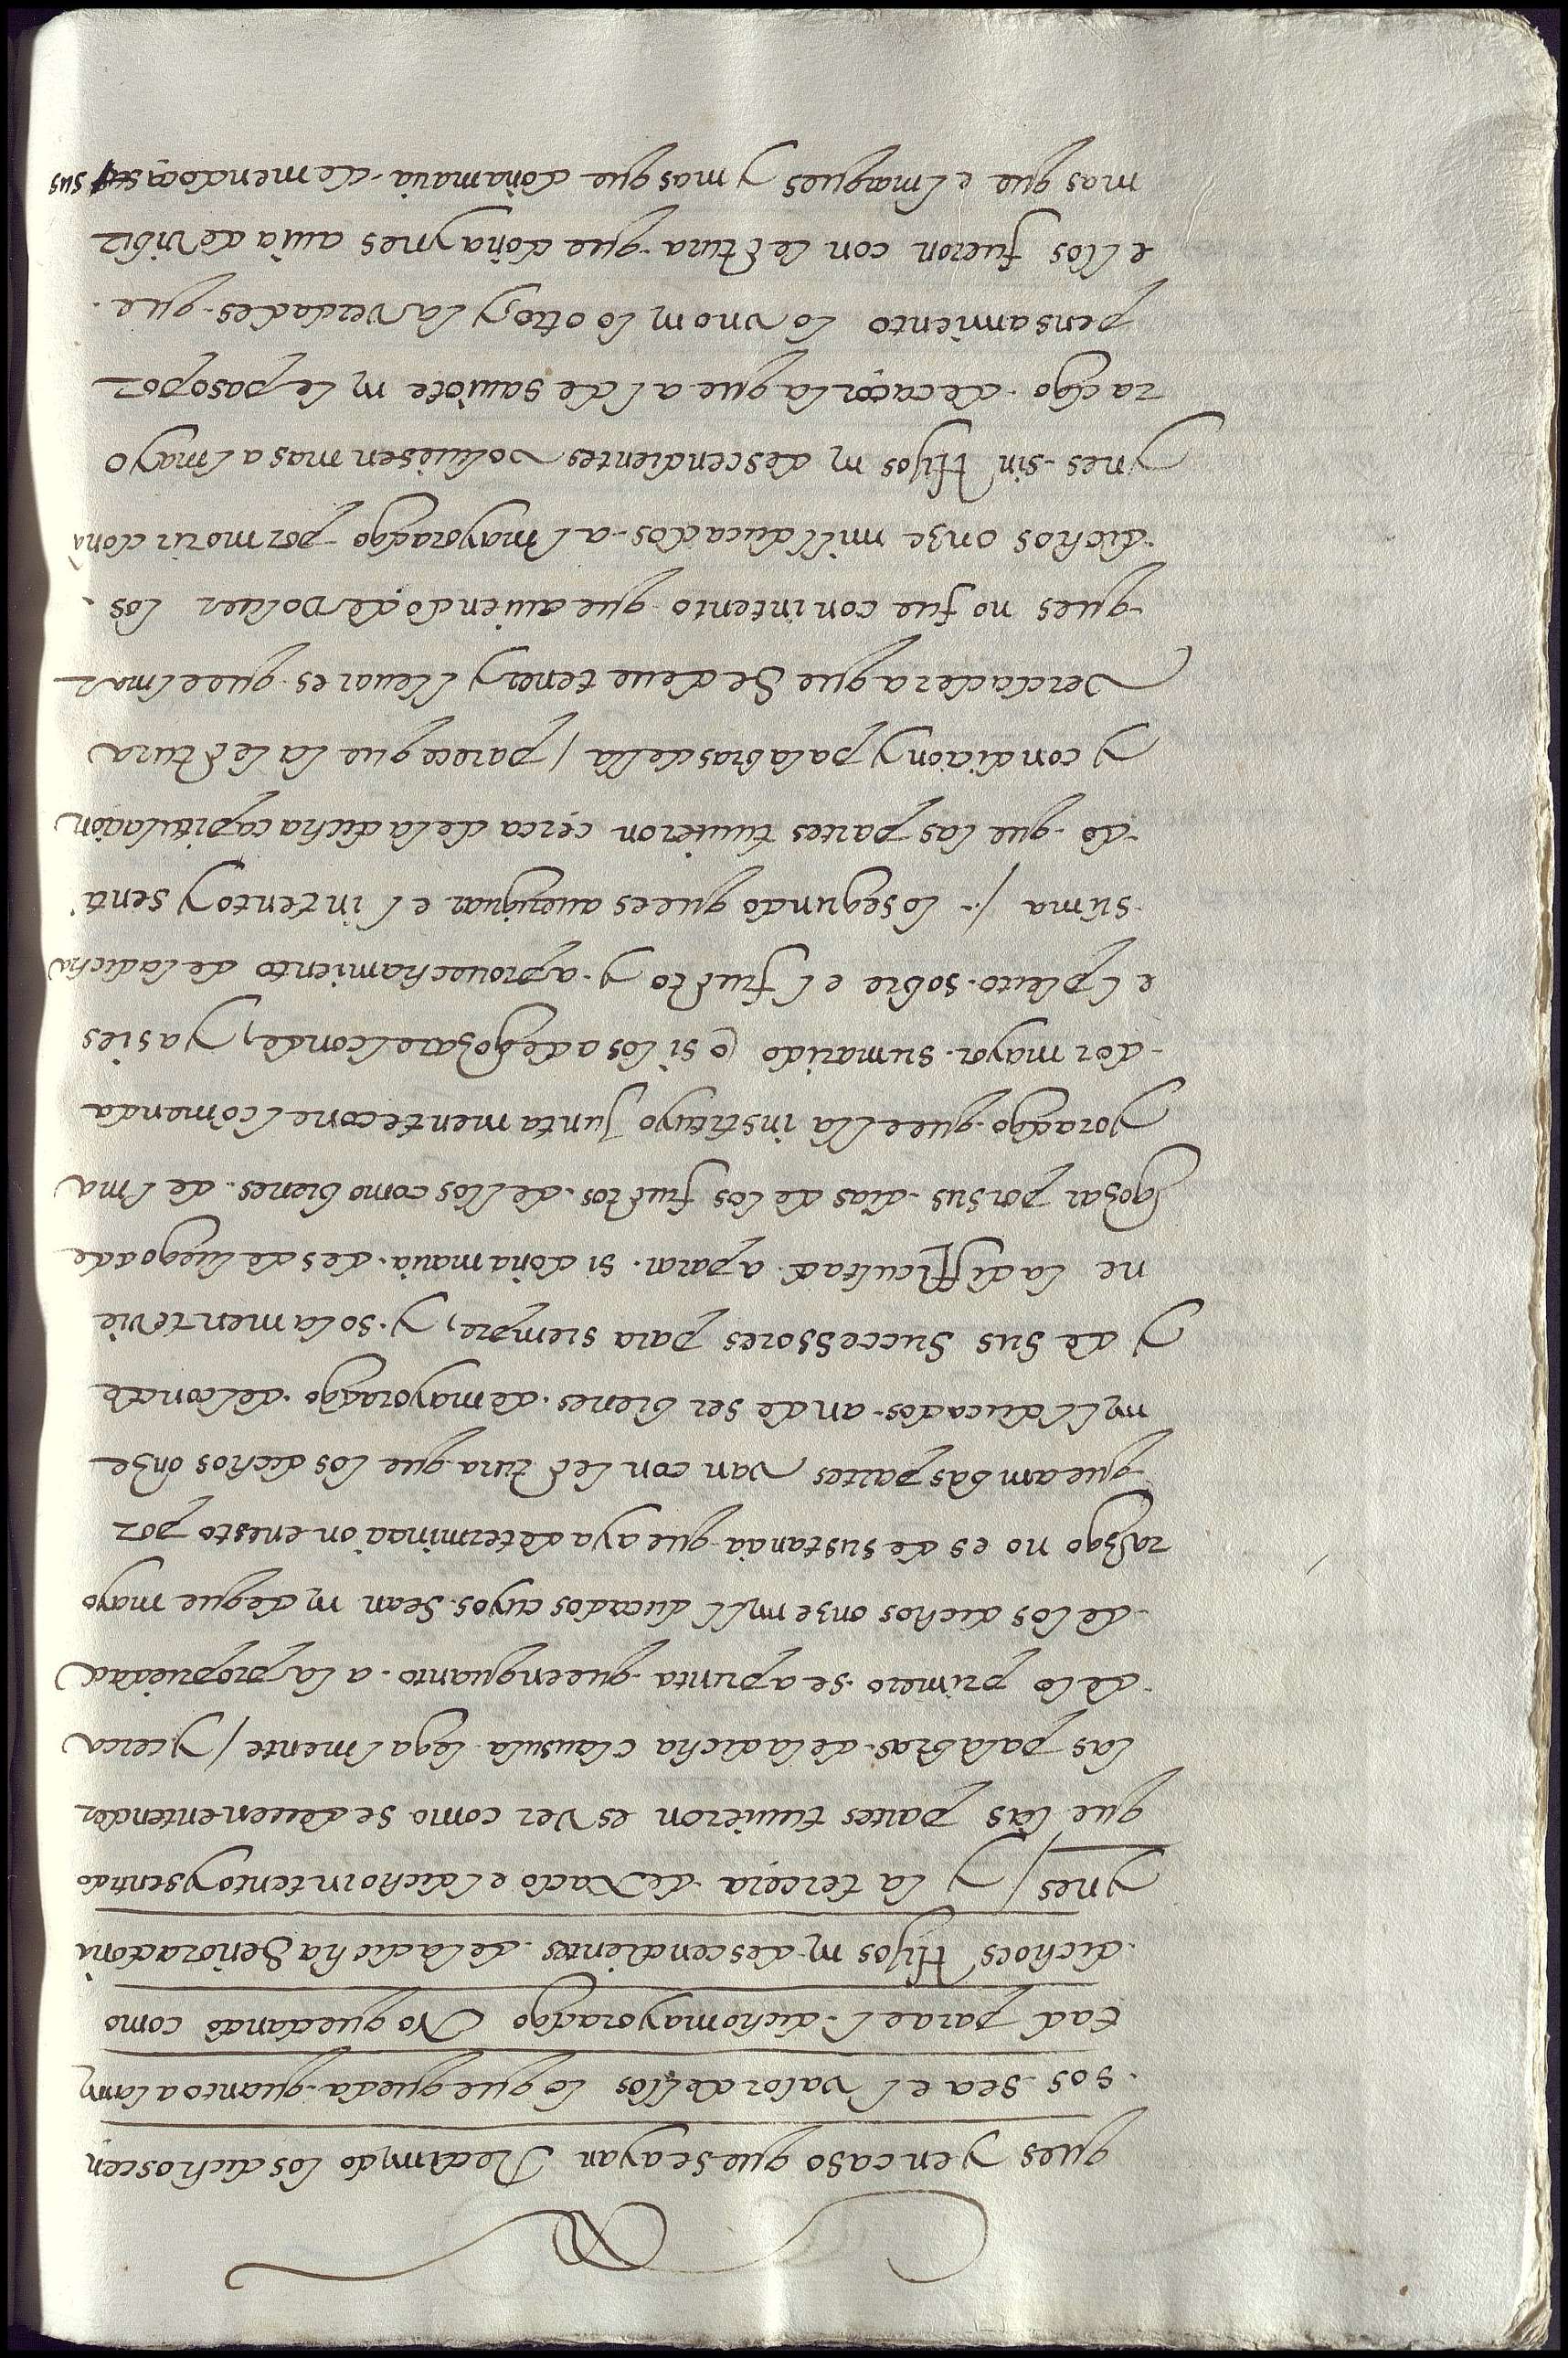 ques y en caso que se ayan Redimydo los dichos cen
sos sea el valor dellos lo que queda quanto a la my
tad para el dicho mayoradgo No quedando como
dicho es Hijos ny descendientes de la dicha Señora doña
Ynes / Y la tercera dexado el dicho intento y sentido
que las partes tuvieron es ver como se deuen entender
las palabras de la dicha clausula legalmente / Y cerca
de lo primero se apunta que en quanto a la propriedad
de los dichos onze myll ducados cuyos sean ny de que mayo
razgo no es de sustancia que aya determinacion en esto por
que ambas partes van con lectura que los dichos onze
myll ducados an de ser bienes de mayoradgo del conde
Y de sus Successores para siempre, y solamente vie
ne la difficultad a parar si doña maria desde luego a de
gozar por sus dias de los fructos dellos como bienes del ma
yoradgo que ella instituyo juntamente con el comenda
dor mayor su marido o si los a de gozar el conde, y asi es
el pleito sobre el fructo y aprouechamiento de la dicha
suma /. lo segundo que es aueriguar el intento y senti
do que las partes tuuieron cerca de la dicha capitulacion
Y condicion y palabras della / parece que la lectura
verdadera que Se deue tener y lleuar es que el mar
ques no fue con intento que auiendo de boluer los
dichos onze mill ducados al mayoradgo por morir doña
Ynes sin Hijos ny descendientes voluiesen mas al mayo
radgo de caçorla que al de sauiote ny le paso por
pensamiento lo vno ny lo otro, y la verdad es que
ellos fueron con lectura que doña ynes auia de vibir
mas que el marques y mas que doña maria de mendoça sus